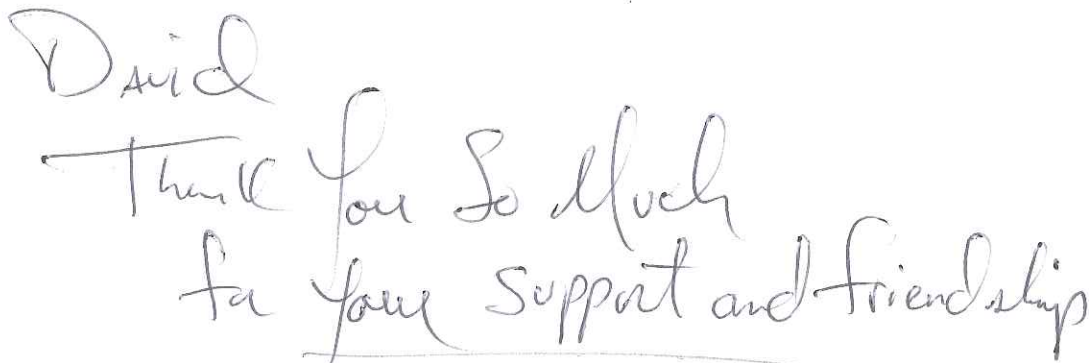 David
Thank You So Much
for your support and friendship